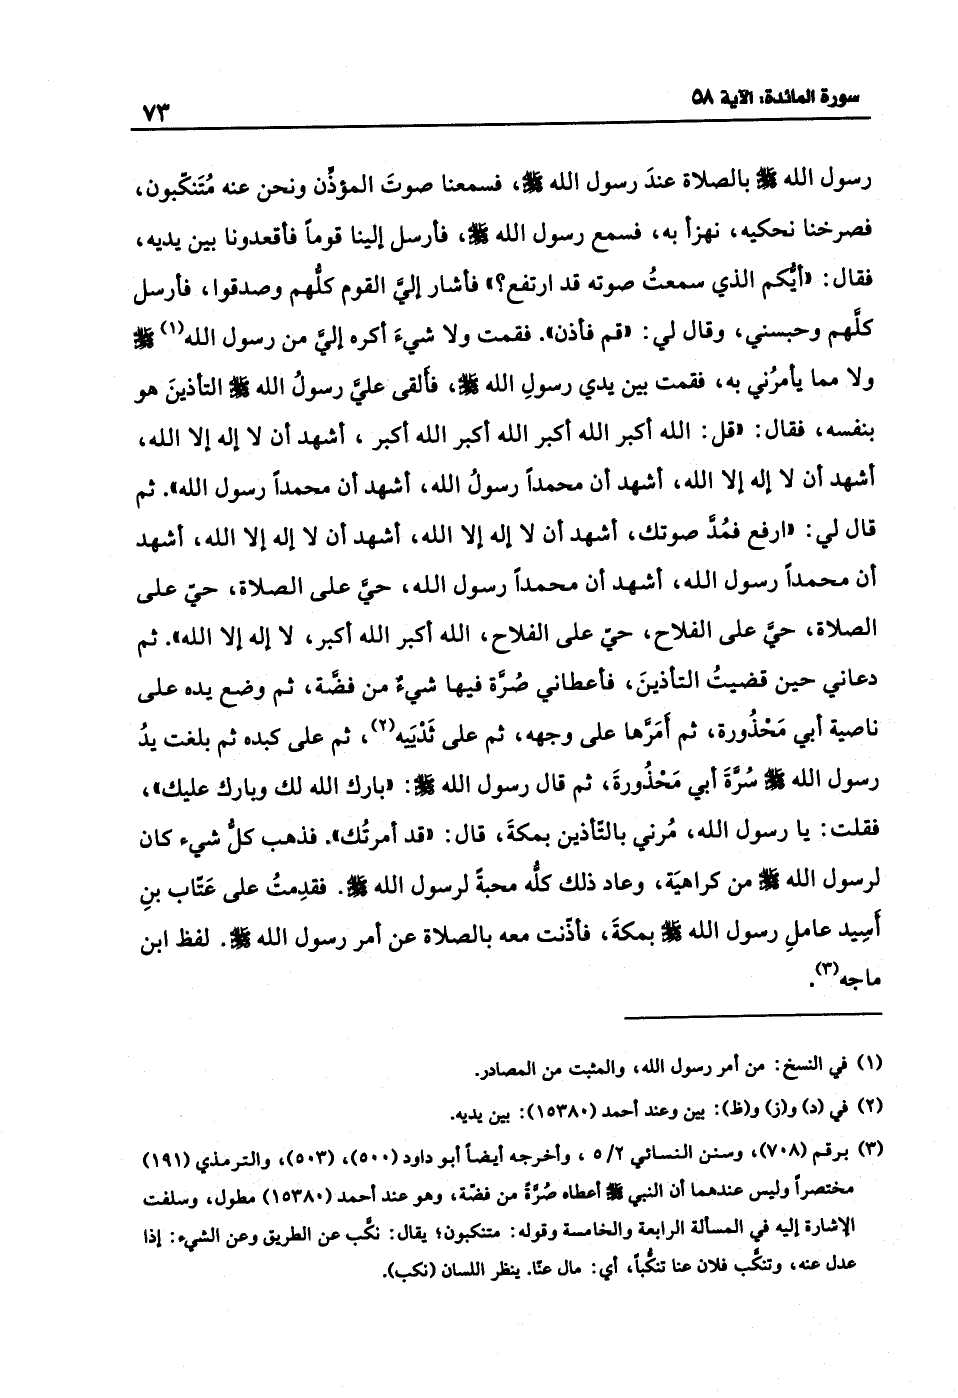 سورة المائدة: الآية ٥٨
٧٣
رسول الله ﷺ بالصلاة عندَ رسول الله ﷺ، فسمعنا صوتَ المؤذِّن ونحن عنه مُتَنكّبون،
فصرخنا نحكيه، نهزأ به، فسمع رسول الله ﷺ، فأرسل إلينا قوماً فأقعدونا بين يديه،
فقال: «أيُّكم الذي سمعتُ صوته قد ارتفع؟» فأشار إليَّ القوم كلُّهم وصدقوا، فأرسل
كلَّهم وحبسني، وقال لي: «قم فأذن». فقمت ولا شيءَ أكره إليَّ من رسول الله(١) ﷺ
ولا مما يأمرُني به، فقمت بين يدي رسولِ الله ﷺ، فألقى عليَّ رسولُ الله ﷺ التأذينَ هو
بنفسه، فقال: «قل: الله أكبر الله أكبر الله أكبر الله أكبر، أشهد أن لا إله إلا الله،
أشهد أن لا إله إلا الله، أشهد أن محمداً رسولُ الله، أشهد أن محمداً رسول الله». ثم
قال لي: «ارفع فمُدَّ صوتك، أشهد أن لا إله إلا الله، أشهد أن لا إله إلا الله، أشهد
أن محمداً رسول الله، أشهد أن محمداً رسول الله، حيَّ على الصلاة، حيّ على
الصلاة، حيَّ على الفلاح، حيّ على الفلاح، الله أكبر الله أكبر، لا إله إلا الله». ثم
دعاني حين قضيتُ التأذينَ، فأعطاني صُرَّة فيها شيءٌ من فضَّة، ثم وضع يده على
ناصية أبي مَحْذُورة، ثم أَمَرَّها على وجهه، ثم على ثَدْيَيه(٢)، ثم على كبده ثم بلغت يدُ
رسول الله ﷺ سُرَّةَ أبي مَحْذُورةَ، ثم قال رسول الله ﷺ: «بارك الله لك وبارك عليك»،
فقلت: يا رسول الله، مُرني بالتّأذين بمكةَ، قال: «قد أمرتُك». فذهب كلُّ شيء كان
لرسول الله ﷺ من كراهيَة، وعاد ذلك كلُّه محبةً لرسول الله ﷺ. فقدِمتُ على عَتّاب بنِ
أَسِيد عاملِ رسول الله ﷺ بمكةَ، فأذّنت معه بالصلاة عن أمر رسول الله ﷺ. لفظ ابن
ماجه(٣).
(١) في النسخ: من أمر رسول الله، والمثبت من المصادر.
(٢) في (د) و(ز) و(ظ): بين وعند أحمد (١٥٣٨٠): بين يديه.
(٣) برقم (٧٠٨)، وسنن النسائي ٥/٢ ، وأخرجه أيضاً أبو داود (٥٠٠)، (٥٠٣)، والترمذي (١٩١)
مختصراً وليس عندهما أن النبي ﷺ أعطاه صُرَّةً من فضّة، وهو عند أحمد (١٥٣٨٠) مطول، وسلفت
الإشارة إليه في المسألة الرابعة والخامسة وقوله: متنكبون؛ يقال: نكَّب عن الطريق وعن الشيء: إذا
عدل عنه، وتنكَّب فلان عنا تنكُّباً، أي: مال عنّا. ينظر اللسان (نكب).